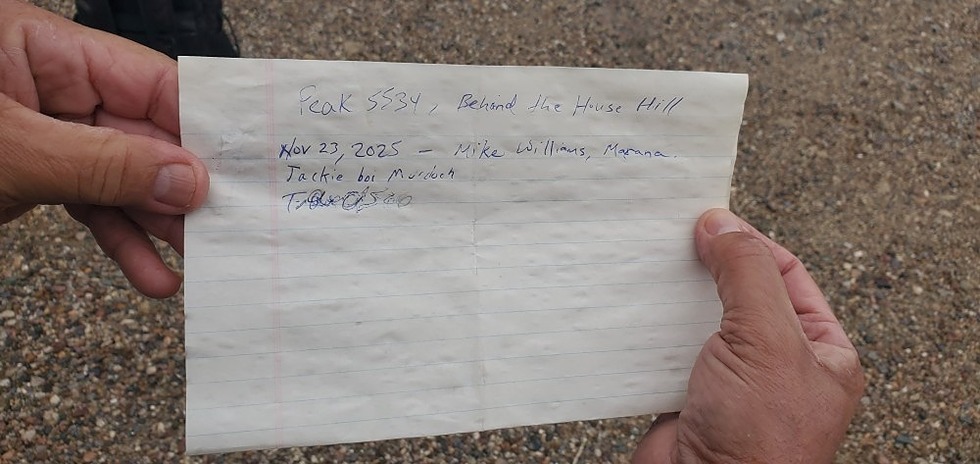 Peak 5534, Behind the House Hill
Nov 23, 2025 – Mike Williams, Marana.
Jackie boi Murdoch